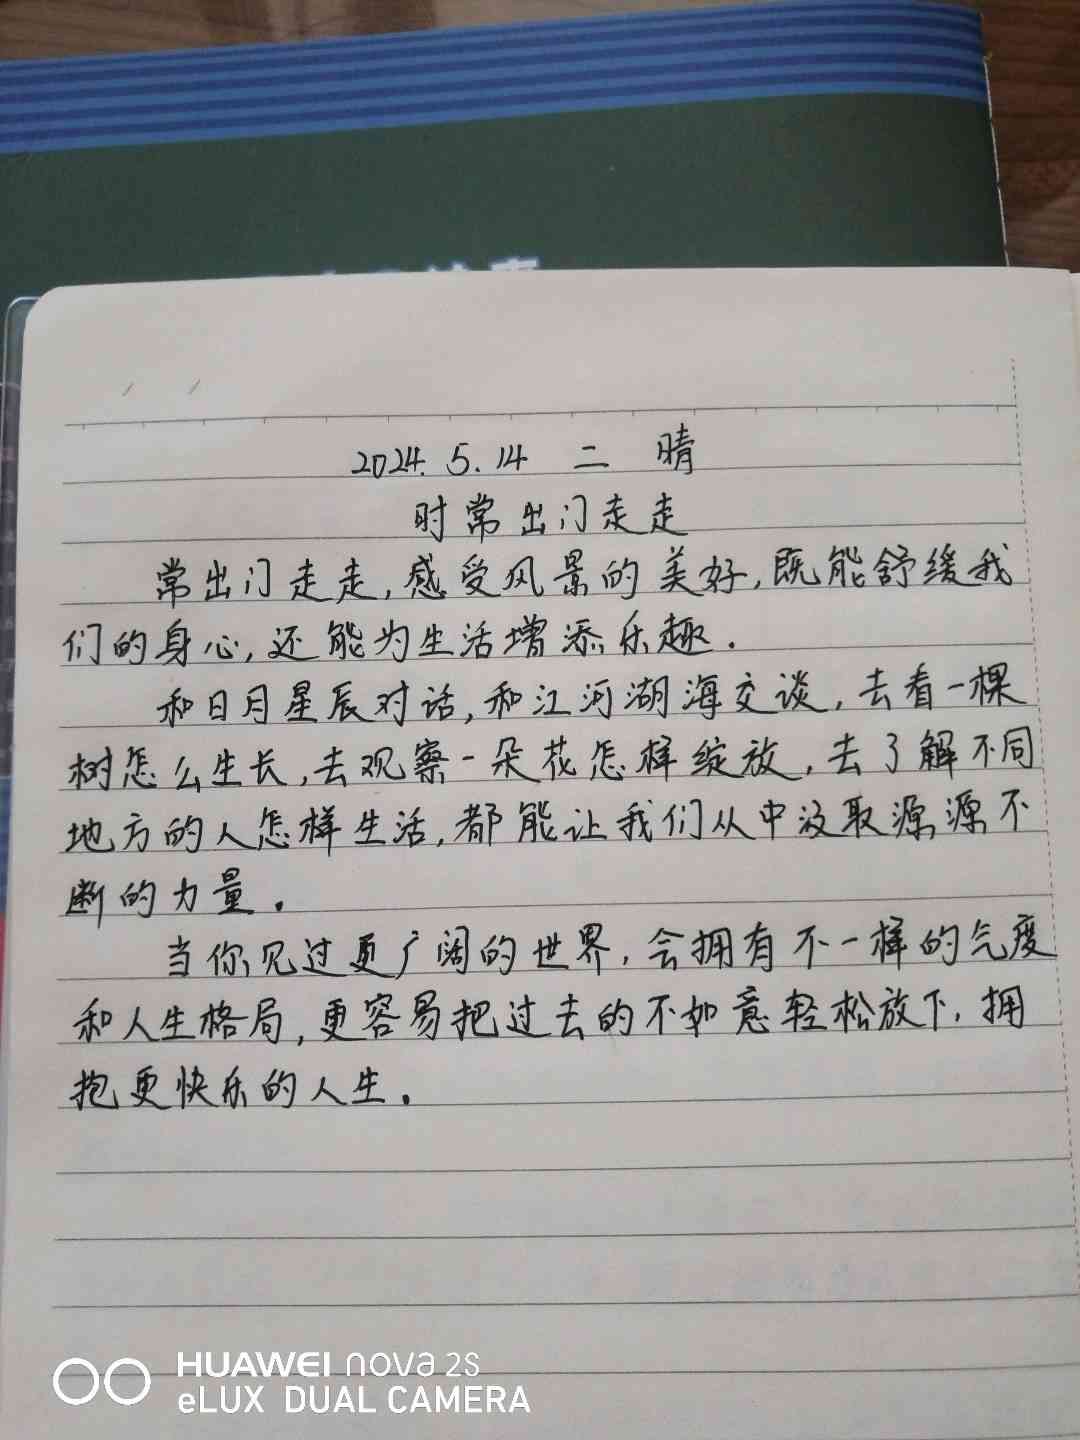 2024.5.14 二 晴
时常出门走走
常出门走走,感受风景的美好,既能舒缓我
们的身心,还能为生活增添乐趣.
和日月星辰对话,和江河湖海交谈,去看一棵
树怎么生长,去观察一朵花怎样绽放,去了解不同
地方的人怎样生活,都能让我们从中汲取源源不
断的力量.
当你见过更广阔的世界,会拥有不一样的气度
和人生格局,更容易把过去的不如意轻松放下,拥
抱更快乐的人生.
HUAWEI nova 2s
eLUX DUAL CAMERA